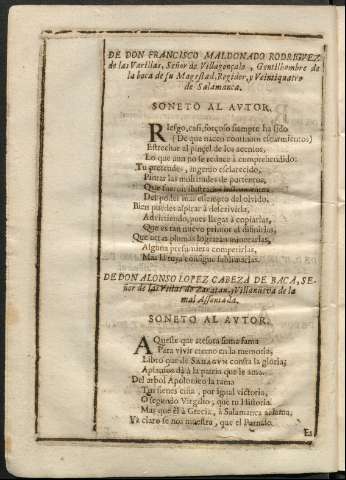 DE DON FRANCISCO MALDONADO RODRIGVEZ
de las Varillas, Señor de Villagonçalo, Gentilhombre de
la boca de su Magestad, Regidor, y Veintiquatro
de Salamanca.
SONETO AL AVTOR.
Riesgo, casi, forçoso siempre ha sido
(De que nacen continuos escarmientos)
Estrechar al pinzel de los acentos,
Lo que aun no se reduce à comprehendido:
Tu pretendes, ingenio esclarecido,
Pintar las multitudes de portentos,
Que fueron
Del poder mas essempto del olvido.
Bien puedes aspirar à descrivirla,
Advirtiendo, pues llegas à copiarlas,
Que es tan nuevo primor el dibuxarlas,
Que otras plumas lograràn minorarlas,
Alguna presumirà competirlas,
Mas la tuya consigue sublimarlas.
DE DON ALONSO LOPEZ CABEZA DE BACA, SE-
ñor de las Villas de Zaratan, y Villanueva de la
mal Assentada.
SONETO AL AVTOR.
Aqueste que atesora suma fama
Para vivir eterno en la memoria,
Libro que de SAHAGVN consta la gloria;
Aplausos dà à la patria que le ama.
Del arbol Apolineo la rama
Tus sienes ciña, por igual victoria,
O segundo Virgilio, que tu Historia
Mas que èl à Grecia, à Salamanca aclama,
Yà claro se nos muestra, que el Parnaso.
Es